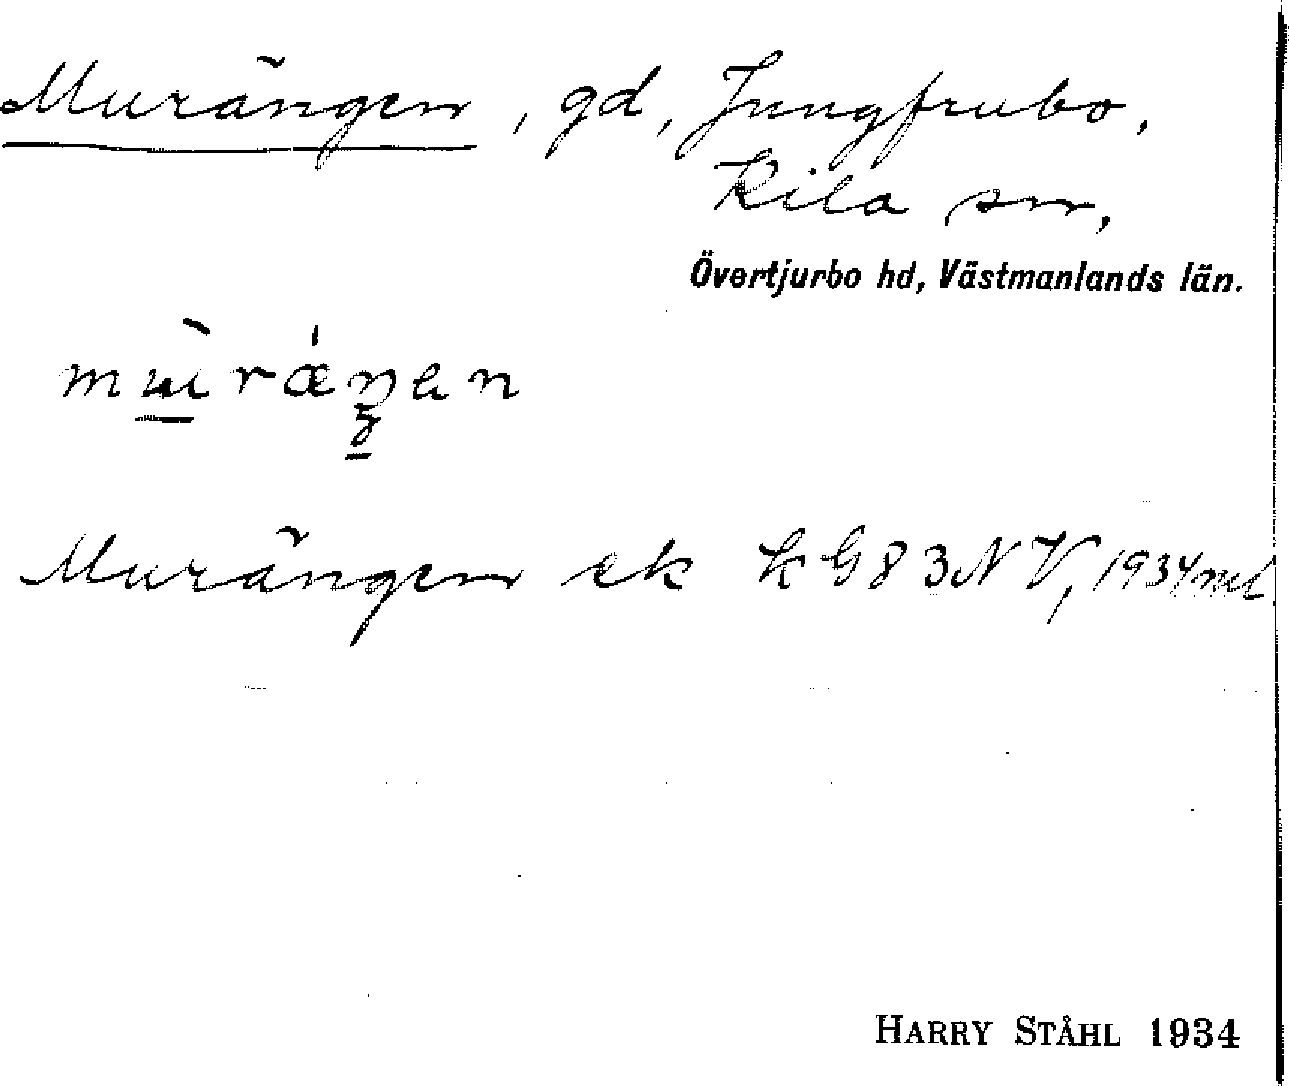 Murängen, gd, Jungfrubo,
Kila sn,
Övertjurbo hd, Västmanlands län.
Murängen ek kG83NV, 1934
HARRY STÅHL 1934